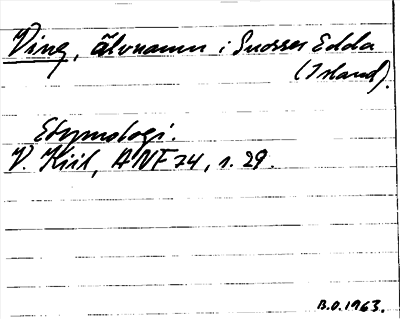 Ving, älvnamn i Snorres Edda
(Island).
Etymologi.
V. Kiil, ANF 74, s. 29.
B.O. 1963.